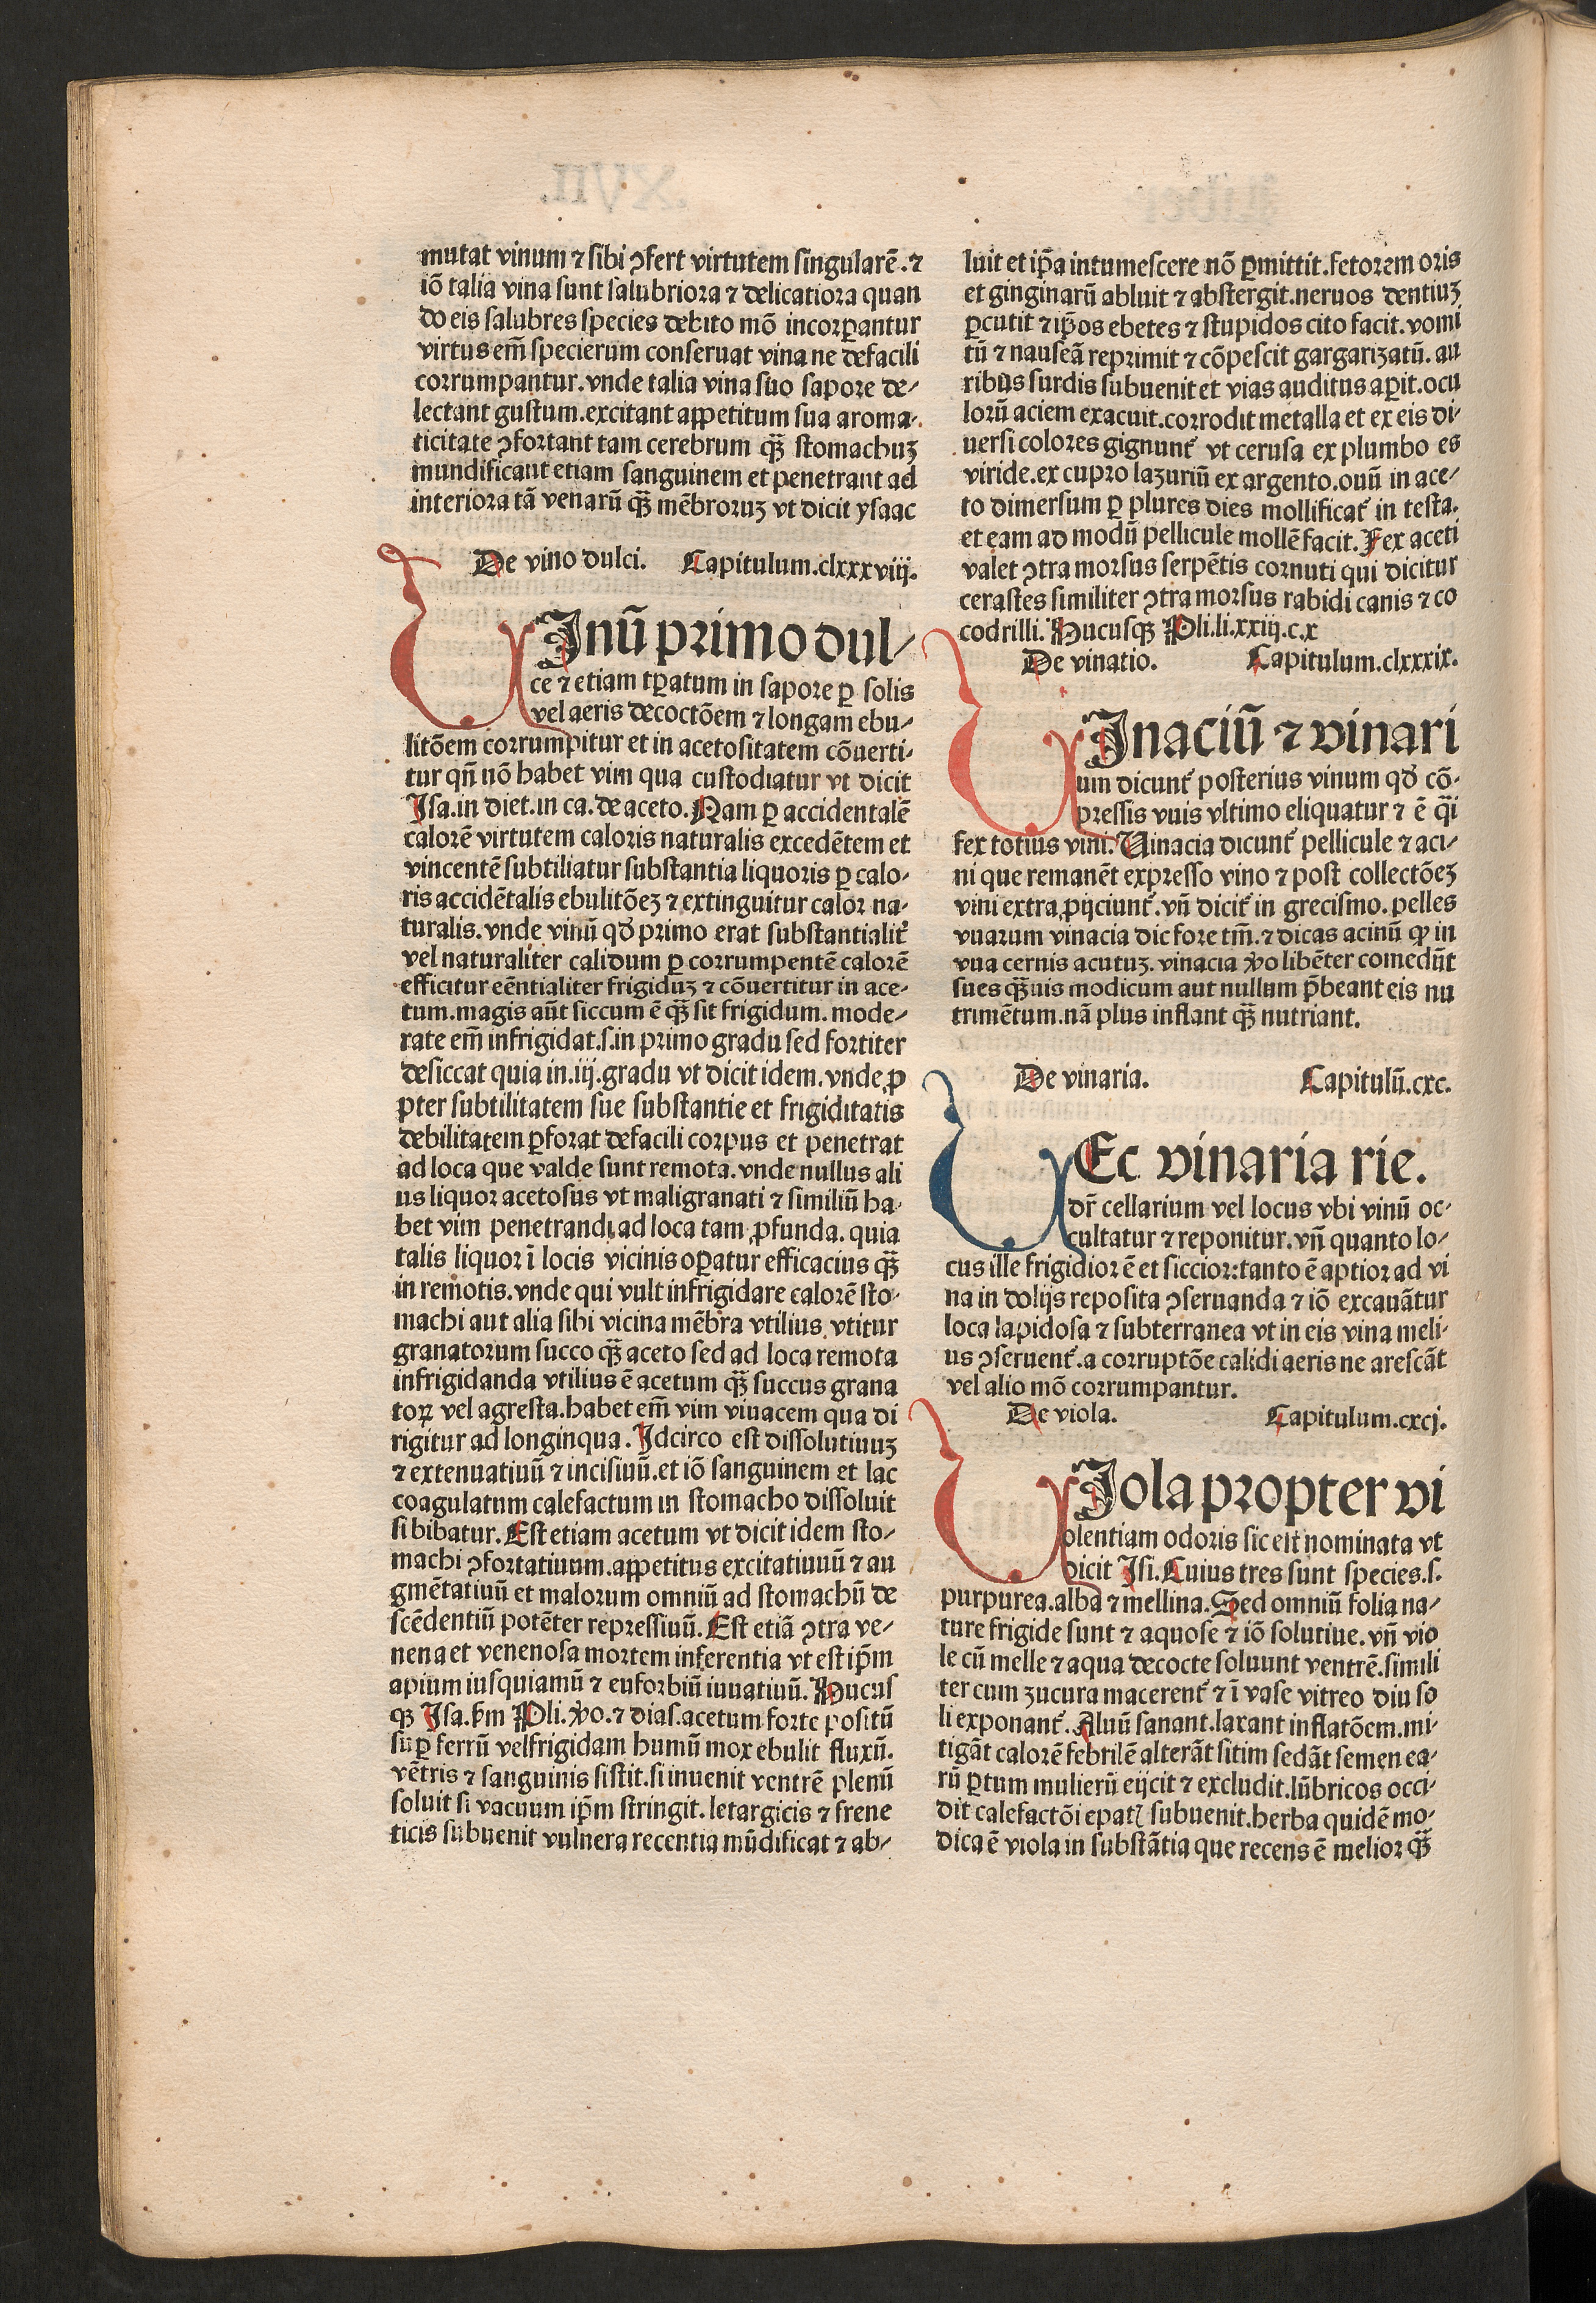 mutat vinum ⁊ sibi ꝯfert virtutem singularē.⁊
iō talia vina sunt salubriora ⁊ delicatiora quan
do eis salubres species debito mō incorꝑantur
virtus em̄ specierum conseruat vina ne defacili
corrumpantur.vnde talia vina suo sapore de⸗
lectant gustum.excitant appetitum sua aroma⸗
ticitate ꝯfortant tam cerebrum qꝫ̄ stomachuꝫ
mundificant etiam sanguinem et penetrant ad
interiora tā venarū qꝫ̄ mēbroruꝫ vt dicit ysaac
De vino dulci. Capitulum.clxxxviij.
VInū primo dul⸗
ce ⁊ etiam tꝑatum in sapore ꝑ solis
vel aeris decoctōem ⁊ longam ebu⸗
litōem corrumpitur et in acetositatem cōuerti⸗
tur qn̄ nō habet vim qua custodiatur vt dicit
Isa.in diet.in ca.de aceto.Nam ꝑ accidentalē
calorē virtutem caloris naturalis excedētem et
vincentē subtiliatur substantia liquoris ꝑ calo⸗
ris accidētalis ebulitōeꝫ ⁊ extinguitur calor na⸗
turalis.vnde vinū qd̄ primo erat substantialit᷑
vel naturaliter calidum ꝑ corrumpentē calorē
efficitur eēntialiter frigiduꝫ ⁊ cōuertitur in ace⸗
tum.magis aūt siccum ē qꝫ̄ sit frigidum.mode⸗
rate em̄ infrigidat.s.in primo gradu sed fortiter
desiccat quia in.iij.gradu vt dicit idem.vnde ꝓ
pter subtilitatem sue substantie et frigiditatis
debilitatem ꝑforat defacili corpus et penetrat
ad loca que valde sunt remota.vnde nullus ali
us liquor acetosus vt maligranati ⁊ similiū ha⸗
bet vim penetrandi ad loca tam ꝓfunda. quia
talis liquor ī locis vicinis oꝑatur efficacius qꝫ̄
in remotis.vnde qui vult infrigidare calorē sto⸗
machi aut alia sibi vicina mēbra vtilius vtitur
granatorum succo qꝫ̄ aceto sed ad loca remota
infrigidanda vtilius ē acetum qꝫ̄ succus grana
toꝝ vel agresta.habet em̄ vim viuacem qua di
rigitur ad longinqua. Idcirco est dissolutiuuꝫ
⁊ extenuatiuū ⁊ incisiuū.et iō sanguinem et lac
coagulatum calefactum in stomacho dissoluit
si bibatur. Est etiam acetum vt dicit idem sto⸗
machi ꝯfortatiuum.appetitus excitatiuuū ⁊ au
gmētatiuū et malorum omniū ad stomachū de
scēdentiū potēter repressiuū. Est etiā ꝯtra ve⸗
nena et venenosa mortem inferentia vt est ip̄m
apium iusquiamū ⁊ euforbiū iuuatiuū. Hucus
qꝫ Isa.ẜm Pli.ꝟo.⁊ dias.acetum forte positū
suꝑ ferrū vel frigidam humū mox ebulit fluxū.
vētris ⁊ sanguinis sistit.si inuenit ventrē plenū
soluit si vacuum ip̄m stringit. letargicis ⁊ frene
ticis subuenit vulnera recentia mūdificat ⁊ ab⸗
luit et ip̄a intumescere nō ꝑmittit.fetorem oris
et ginginarū abluit ⁊ abstergit.neruos dentiuꝫ
ꝑcutit ⁊ ip̄os ebetes ⁊ stupidos cito facit.vomi
tū ⁊ nauseā reprimit ⁊ cōpescit gargarizatū. au
ribus surdis subuenit et vias auditus aꝑit.ocu
lorū aciem exacuit.corrodit metalla et ex eis di⸗
uersi colores gignunt᷑ vt cerusa ex plumbo es
viride.ex cupro lazuriū ex argento.ouū in ace⸗
to dimersum ꝑ plures dies mollificat᷑ in testa.
et eam ad modū pellicule mollē facit. Fex aceti
valet ꝯtra morsus serpētis cornuti qui dicitur
cerastes similiter ꝯtra morsus rabidi canis ⁊ co
codrilli. Hucusqꝫ Pli.li.xxiij.c.x
De vinatio. Capitulum.clxxxix.
VInaciū ⁊ vinari
um dicunt᷑ posterius vinum qd̄ cō⸗
pressis vuis vltimo eliquatur ⁊ ē q̄i
fex totius vini. Vinacia dicunt᷑ pellicule ⁊ aci⸗
ni que remanēt expresso vino ⁊ post collectōeꝫ
vini extra ꝓijciunt᷑.vn̄ dicit᷑ in grecismo.pelles
vuarum vinacia dic fore tm̄.⁊ dicas acinū ꝙ in
vua cernis acutuꝫ. vinacia ꝟo libēter comedūt
sues qꝫ̄uis modicum aut nullum p̄beant eis nu
trimētum.nā plus inflant qꝫ̄ nutriant.
De vinaria. Capitulū.cxc.
VEc vinaria rie.
dr̄ cellarium vel locus vbi vinū oc⸗
cultatur ⁊ reponitur.vn̄ quanto lo⸗
cus ille frigidior ē et siccior:tanto ē aptior ad vi
na in dolijs reposita ꝯseruanda ⁊ iō excauātur
loca lapidosa ⁊ subterranea vt in eis vina meli⸗
us ꝯseruent᷑.a corruptōe calidi aeris ne arescāt
vel alio mō corrumpantur.
De viola. Capitulum.cxcj.
VIola propter vi
olentiam odoris sic est nominata vt
dicit Isi. Cuius tres sunt species.s.
purpurea.alba ⁊ mellina.Sed omniū folia na⸗
ture frigide sunt ⁊ aquose ⁊ iō solutiue. vn̄ vio
le cū melle ⁊ aqua decocte soluunt ventrē.simili
ter cum zucura macerent᷑ ⁊ ī vase vitreo diu so
li exponant᷑. Aluū sanant.laxant inflatōem.mi⸗
tigāt calorē febrilē alterāt sitim sedāt semen ea⸗
rū ꝑtum mulierū eijcit ⁊ excludit.lūbricos occi⸗
dit calefactōi epatꝭ subuenit.herba quidē mo⸗
dica ē viola in substātia que recens ē melior qꝫ̄